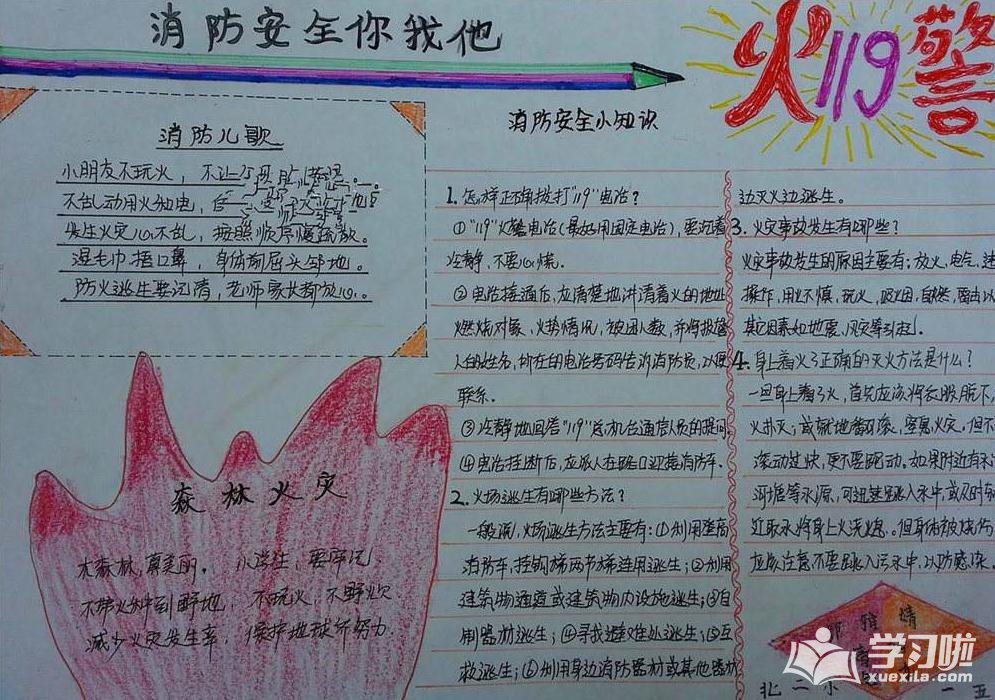 消防安全你我他
火119警
消防儿歌
小朋友不玩火，不让
不乱动用火和电，
发生火灾心不乱，按照顺序慢疏散。
湿毛巾捂口鼻，身体前屈头
防火逃生要记清，老师家长都放心。
森林火灾
大森林，真美丽。小学生，要牢记
不带火种到野地，不玩火，不野炊
减少火灾发生率，保护地球你努力.
消防安全小知识
1. 怎样正确拨打"119"电话？
①"119"火警电话(最好用固定电话)，要沉着
冷静，不要心慌.
②电话接通后，应清楚地讲清着火的地址
燃烧对象、火势情况，被困人数，并将报警
人的姓名，所在的电话号码告诉消防员，以便
联系.
③冷静地回答"119"总机台通信人员的提问
④电话挂断后，应派人在路口迎接消防车.
2. 火场逃生有哪些方法？
一般说，火场逃生方法主要有：①利用登高
消防车，挂钩梯两节梯连用逃生；②利用
建筑物通道或建筑物内设施逃生；③自
制器材逃生；④寻找避难处逃生；⑤互
救逃生；⑥利用身边消防器材或其他器材
边灭火边逃生.
3. 火灾事故发生有哪些？
火灾事故发生的原因主要有：放火，电气，违
操作，用火不慎，玩火，吸烟，自然，雷击以
其它因素如地震、风灾等引起.
4. 身上着火了正确的灭火方法是什么？
一旦身上着了火，首先应该将衣服脱下，
火扑灭；或就地翻滚，窒息火灾。但不
滚动过快，更不要跑动。如果附近有水
河塘等水源，可迅速跳入水中，或及时
过取水将身上火浇熄。但身体被烧伤
应该注意不要跳入污水中，以防感染.
雅婧
北二小 一五
学习啦
xuexila.com